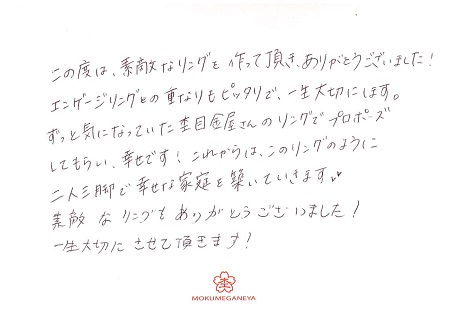 この度は、素敵なリングを作って頂き、ありがとうございました！
エンゲージリングとの重なりもピッタリで、一生大切にします。
ずっと気になっていた杢目金屋さんのリングでプロポーズ
してもらい、幸せです！これからは、このリングのように
二人三脚で幸せな家庭を築いていきます♥
素敵なリングをありがとうございました！
一生大切にさせて頂きます！
MOKUMEGANEYA